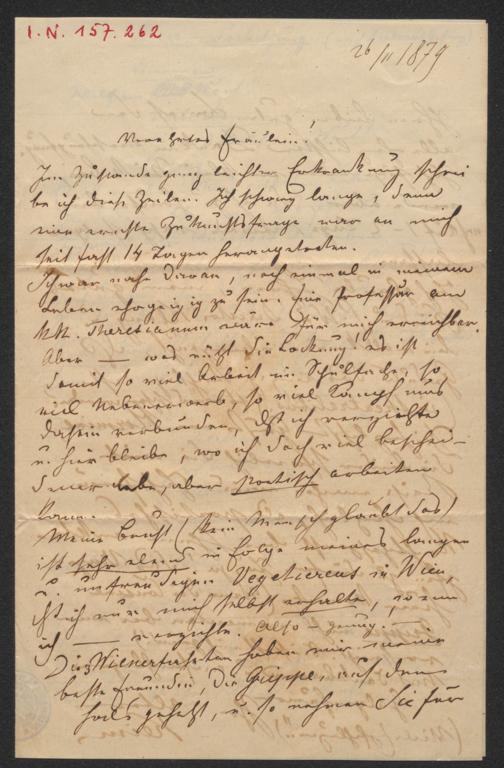 I.N. 157.262
26/II 1879
Verehrtes Fräulein!
Im Zustande ganz leichter Erkrankung schrei
be ich diese Zeilen. Ich schwieg lange, denn
eine ernste Zukunftsfrage war an mich
seit fast 14 Tagen herangetreten.
Ich war nahe daran, noch einmal in meinem
Leben ehrgeizig zu sein. Eine Professur am
k.k. Theresianum wäre für mich erreichbar.
Aber — was nützt die Lockung! es ist
damit so viel Arbeit im Schulfache, so
viel Nebenerwerb, so viel Kampf ums
Dasein verbunden, daß ich verzichte
u. hier bleibe, wo ich doch viel beschei-
dener lebe, aber poetisch arbeiten
kann.
Meine Brust (kein Mensch glaubt das)
ist sehr elend in Folge meines langen
u. Vegetierens in Wien,
ich nur mich selbst erhalte, wenn
ich — verzichte. Also — genug. —
Die Wienerfahrten haben mir meine
beste Freundin, die Grippe, auf den
Hals gehetzt, u. so nehmen Sie für